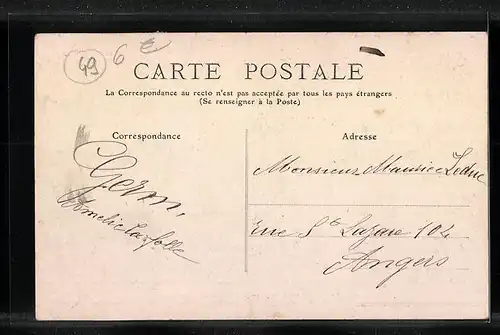 49 6 €
CARTE POSTALE
La Correspondance au recto n'est pas acceptée par tous les pays étrangers
(Se renseigner à la Poste)
Correspondance
Adresse
Germ.
Amelie la folle
Monsieur Maurice Leduc
rue St Lazare 104
Angers